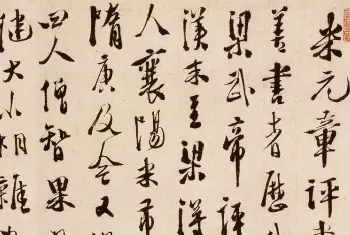 米元章評書
善書者歷代
梁武帝評
漢末至梁得
人襄陽米芾
隋唐及今又
四人僧智果
健大小相雜